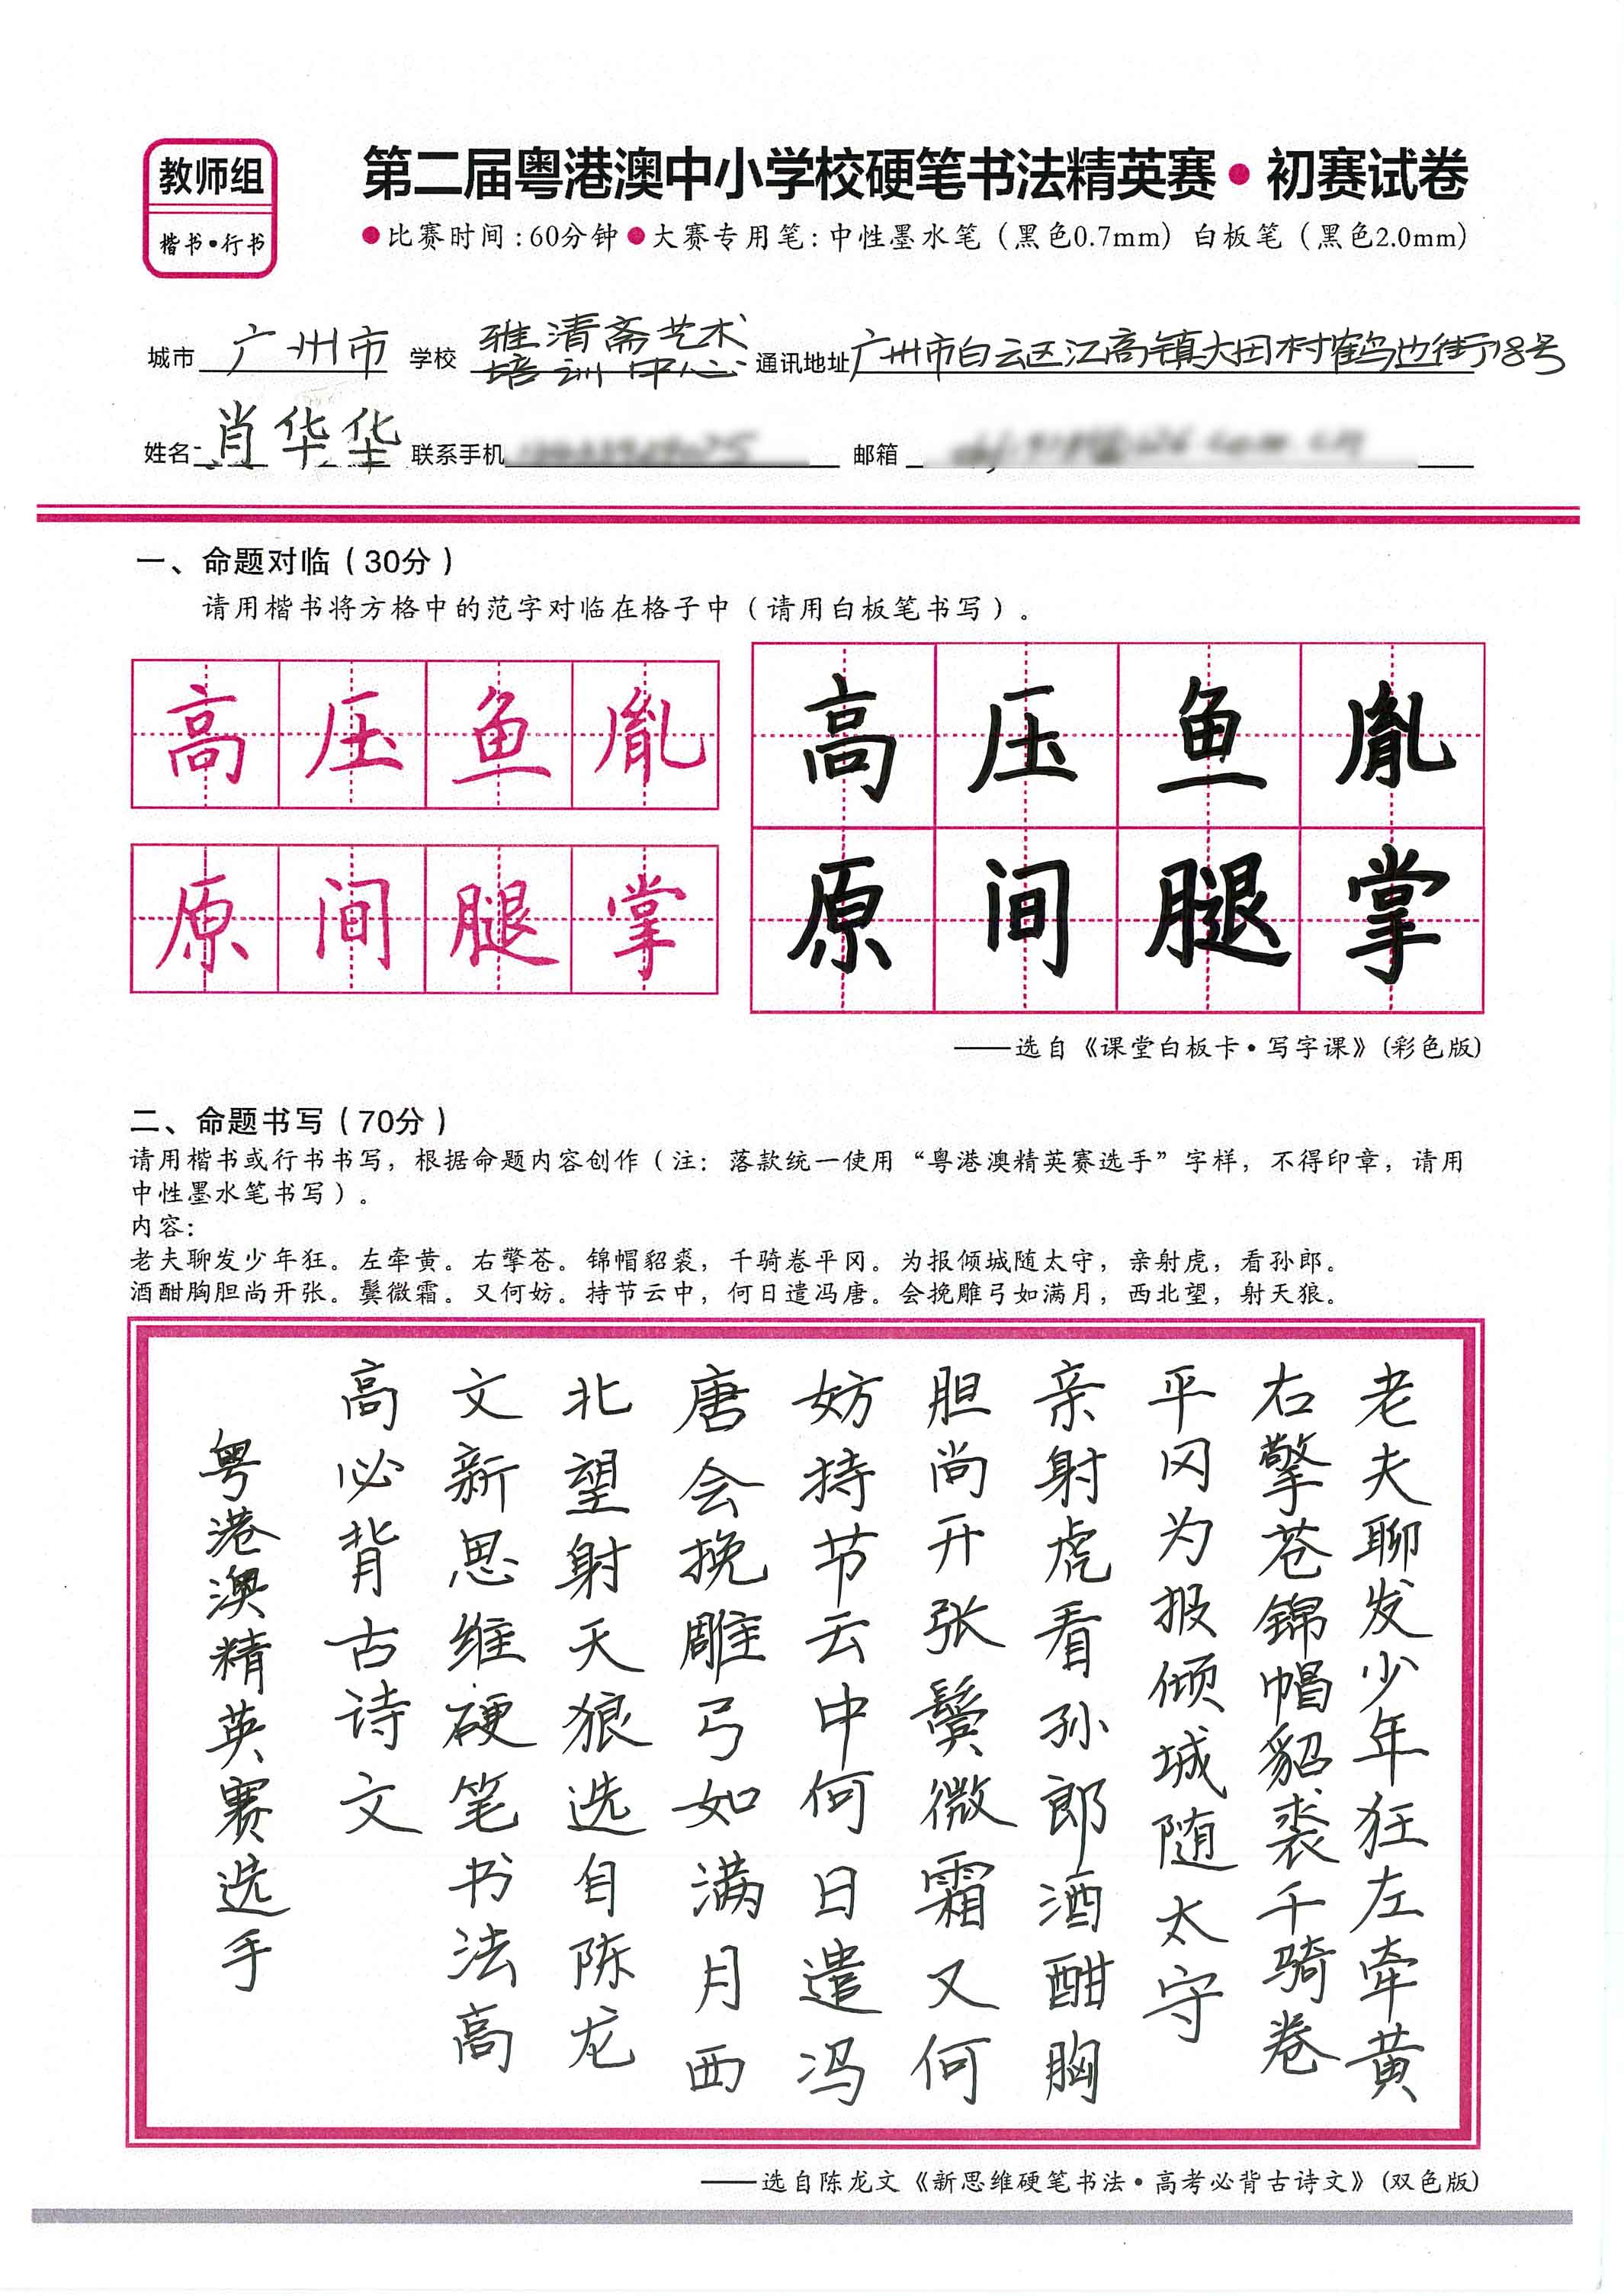 教师组
楷书•行书
第二届粤港澳中小学校硬笔书法精英赛•初赛试卷
●比赛时间:60分钟●大赛专用笔:中性墨水笔（黑色0.7mm）白板笔（黑色2.0mm）
城市 广州市 学校 雅清斋艺术培训中心 通讯地址 广州市白云区江高镇大田村鹤边街18号
姓名 肖华华 联系手机 邮箱
一、命题对临（30分）
请用楷书将方格中的范字对临在格子中（请用白板笔书写）。
高压鱼胤
原间腿掌
高压鱼胤
原间腿掌
——选自《课堂白板卡•写字课》(彩色版)
二、命题书写（70分）
请用楷书或行书书写，根据命题内容创作（注：落款统一使用“粤港澳精英赛选手”字样，不得印章，请用
中性墨水笔书写）。
内容：
老夫聊发少年狂。左牵黄。右擎苍。锦帽貂裘，千骑卷平冈。为报倾城随太守，亲射虎，看孙郎。
酒酣胸胆尚开张。鬓微霜。又何妨。持节云中，何日遣冯唐。会挽雕弓如满月，西北望，射天狼。
老夫聊发少年狂左牵黄
右擎苍锦帽貂裘千骑卷
平冈为报倾城随太守
亲射虎看孙郎酒酣胸
胆尚开张鬓微霜又何
妨持节云中何日遣冯
唐会挽雕弓如满月西
北望射天狼选自陈龙
文新思维硬笔书法高
高必背古诗文
粤港澳精英赛选手
——选自陈龙文《新思维硬笔书法•高考必背古诗文》(双色版)